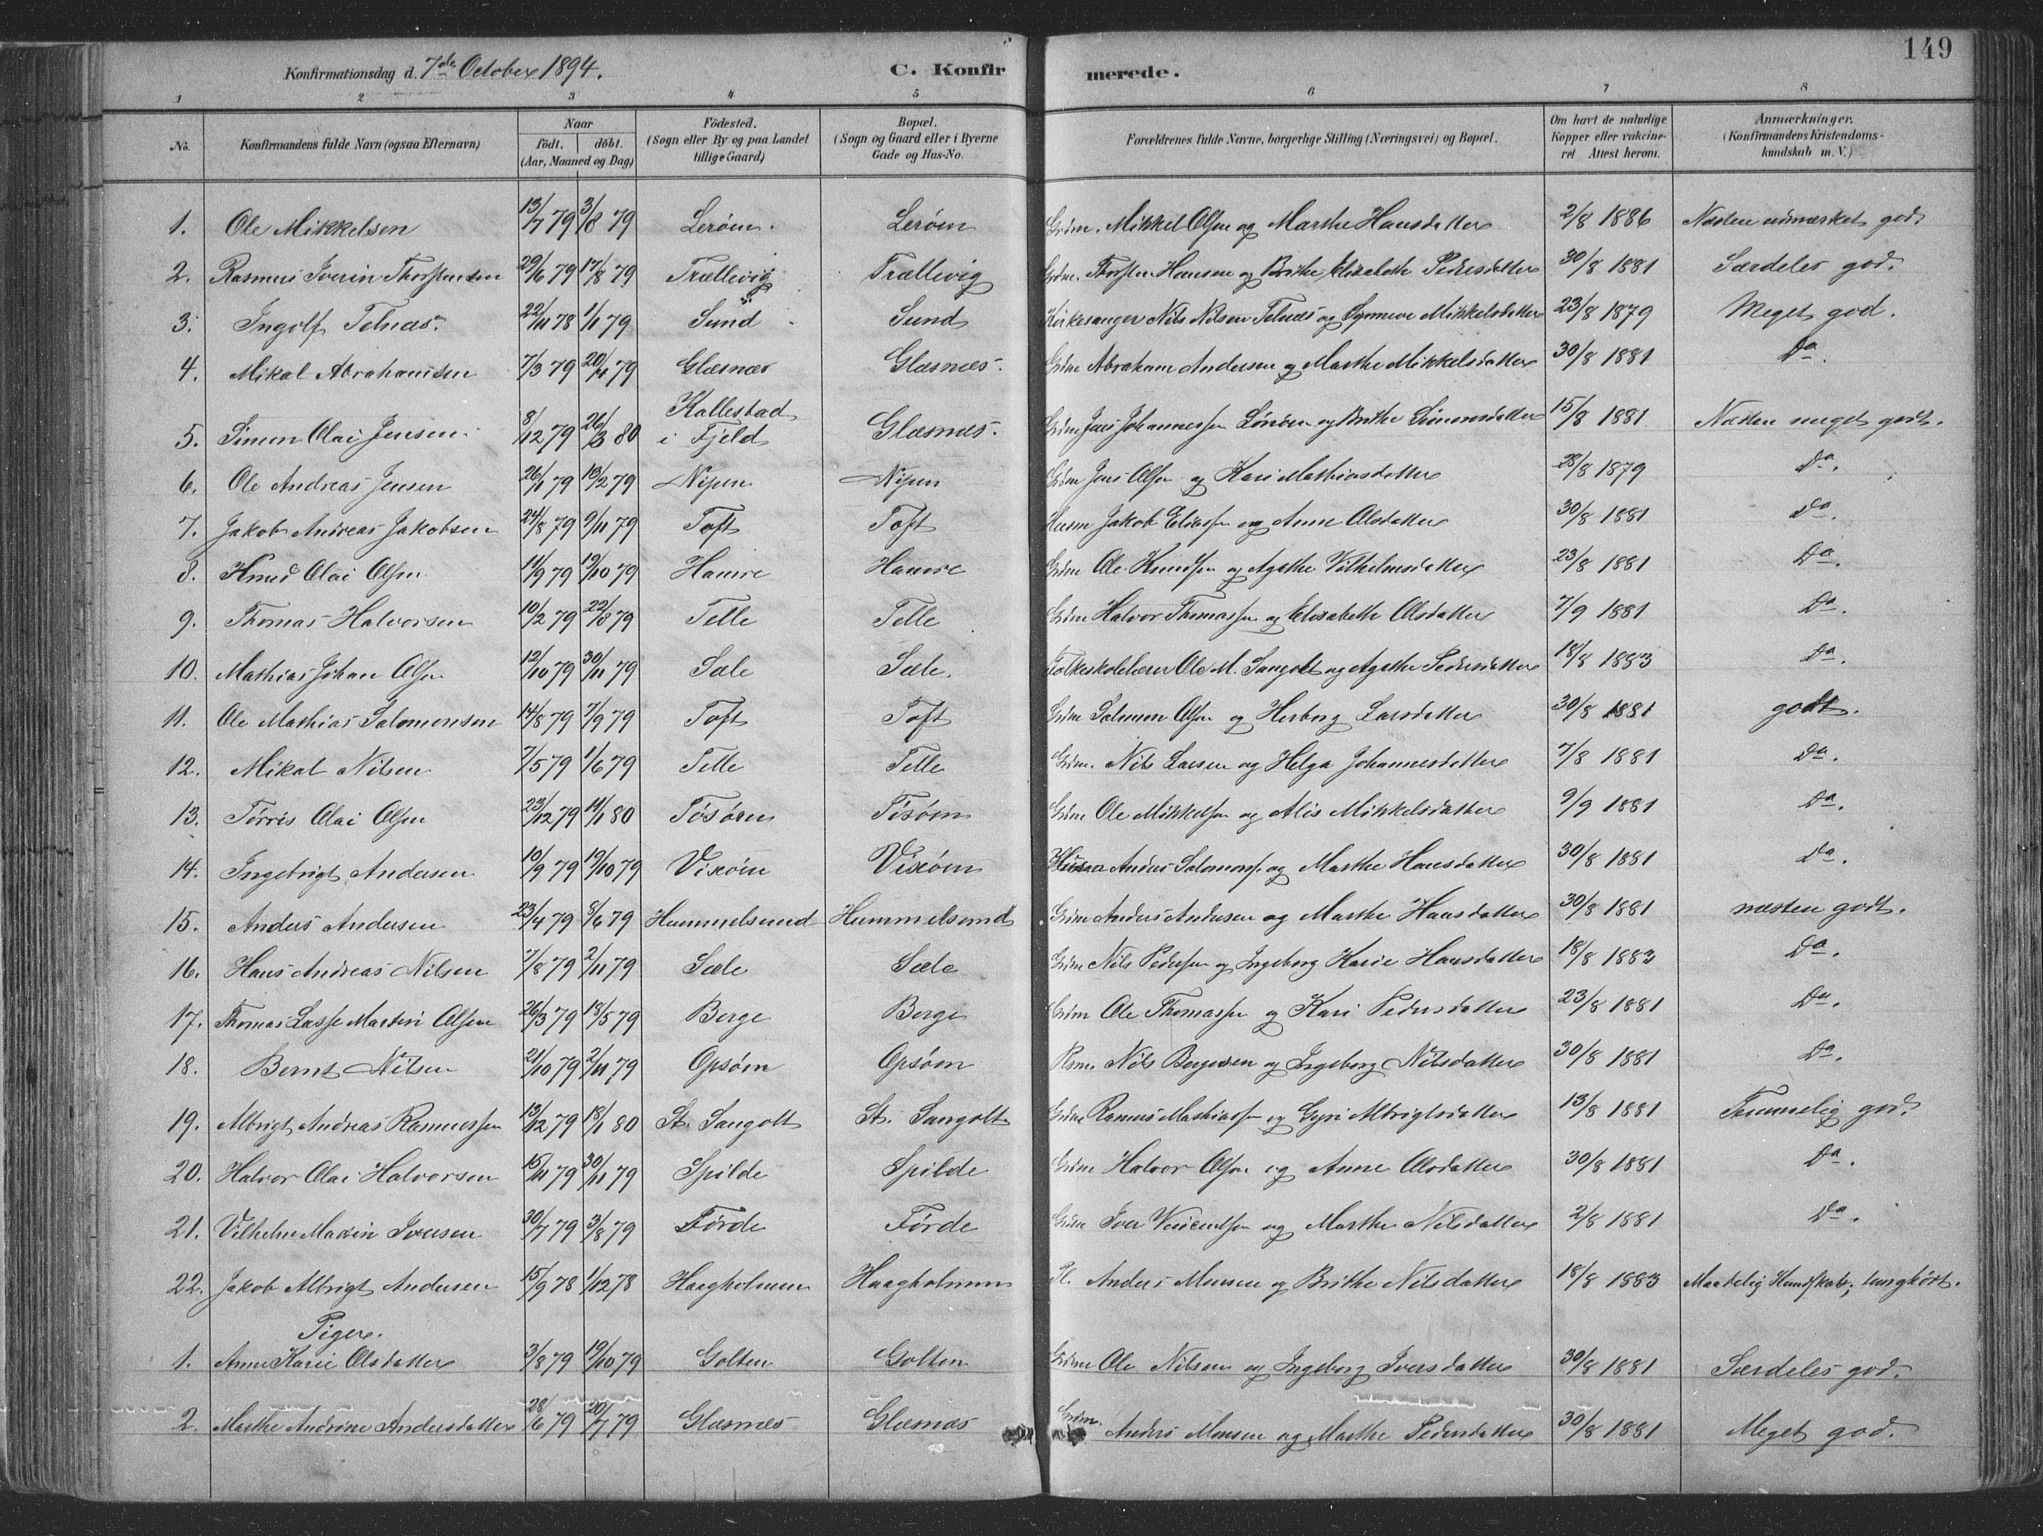 149
Konfirmationsdag d. 7de October 1894. C. Konfirmerede.
1 2 3 4 5 6 7 8
No. Konfirmandens fulde Navn (ogsaa Efternavn) Naar födt. döbt. (Aar, Maaned og Dag) Födested. (Sogn eller By og paa Landet tillige Gaard) Bopæl. (Sogn og Gaard eller i Byerne Gade og Hus-No. Forældrenes fulde Navne, borgerlige Stilling (Næringsvei) og Bopæl. Om havt de naturlige Kopper eller vakcineret Attest herom. Anmærkninger. (Konfirmandens Kristendomskundskab m. V.)
1. Ole Mikkelsen 13/7 79 3/8 79 Lerøen Lerøen Grdm. Mikkel Olsen og Marthe Hansdatter 2/8 1886 Næsten udmærket god
2. Rasmus Iverin Thorstensen 29/6 79 17/8 79 Trællevig Trællevig Grdm. Thorsten Hansen og Brithe Elisabeth Pedersdatter 30/8 1881 Særdeles god.
3. Ingolf Telnæs. 22/11 78 1/1 79 Sund Sund Kirkesanger Nils Nilsen Telnæs og Synneve Mikkelsdatter 23/8 1879 Meget god.
4. Mikal Abrahamsen 7/3 79 20/4 79 Glæsnæs Glæsnæs. Grdm Abraham Andersen og Marthe Mikkelsdatter 30/8 1881 Da.
5. Simon Olai Jensen 8/12 79 26/3 80 Kallestad i Fjeld Glæsnæs. Grdm Jens Johannessen og Brithe Simonsdatter 15/8 1881 Næsten meget godt.
6. Ole Andreas Jensen 26/1 79 13/2 79 Nipen Nipen Grdm Jens Olsen og Kari Mathiasdatter 28/8 1879 Da.
7. Jakob Andreas Jakobsen 24/8 79 9/11 79 Toft Toft Husm Jakob Eliassen og Anne Olsdatter 30/8 1881 Da.
8. Knud Olai Olsen 11/9 79 19/10 79 Hamre Hamre Grdm Ole Knudsen og Agathe Vilhelmsdatter 23/8 1881 Da.
9. Thomas Halvorsen 10/2 79 22/8 79 Telle Telle Grdm Halvor Thomassen og Elisabeth Olsdatter 7/9 1881 Da.
10. Mathias Johan Olsen 12/10 79 30/11 79 Sæle Sæle. Folkeskolelærer Ole M. Sangolt og Agathe Pedersdatter 18/8 1883 Da.
11. Ole Mathias Salomonsen 14/8 79 7/9 79 Toft Toft Grdm Salomon Olsen og Herborg Larsdatter 30/8 1881 godt.
12. Mikal Nilsen 7/5 79 1/6 79 Telle Telle Grdm. Nils Larsen og Helga Johannesdatter 7/8 1881 Da.
13. Torris Olai Olsen 23/12 79 11/1 80 Tøsøen Tøsøen Grdm Ole Mikkelsen og Alis Mikkelsdatter 9/9 1881 Da.
14. Ingebrigt Andersen 10/9 79 19/10 79 Vixøen Vixøen Husm Anders Salomonsen og Marthe Hansdatter 30/8 1881 Da.
15. Anders Andersen 23/4 79 8/6 79 Hummelsund Hummelsund Grdm Anders Andersen og Marthe Hansdatter 30/8 1881 næsten godt.
16. Hans Andreas Nilsen 7/8 79 2/11 79 Sæle Sæle Grdm Nils Pedersen og Ingeborg Karie Hansdatter 18/8 1883 Da.
17. Thomas Lasse Martin Olsen 26/3 79 18/5 79 Berge Berge Grdm Ole Thomassen og Kari Pedersdatter 23/8 1881 Da.
18. Bernt Nilsen 21/10 79 2/11 79 Opsøen Opsøen Nils Børgesen og Ingeborg Nilsdatter 30/8 1881 Da.
19. Albrigt Andreas Rasmussen 13/12 79 18/1 80 St. Sangolt St. Sangolt Grdm Rasmus Mathiassen og Gyri Albrigtsdatter 13/8 1881 Temmelig god.
20. Halvor Olai Halvorsen 15/11 79 30/11 79 Spilde Spilde Grdm Halvor Olsen og Anne Olsdatter 30/8 1881 Da.
21. Vilhelm Maxin Iversen 30/7 79 3/8 79 Førde Førde Grdm Iver Vincentsen og Marthe Nilsdatter 2/8 1881 Da.
22. Jakob Albrigt Andersen 15/9 78 1/12 78 Haagholmen Haagholmen H. Anders Monsen og Brithe Nilsdatter 18/8 1883 Maadelig Kundskab; tunghørt.
Piger.
1. Anne Karie Olsdatter 3/8 79 19/10 79 Golten Golten Grdm Ole Nilsen og Ingeborg Iversdatter 30/8 1881 Særdeles god.
2. Marthe Andrine Andersdatter 28/6 79 20/7 79 Glæsnæs Glæsnæs Grdm. Anders Monsen og Marthe Pedersdatter 30/8 1881 Meget god.